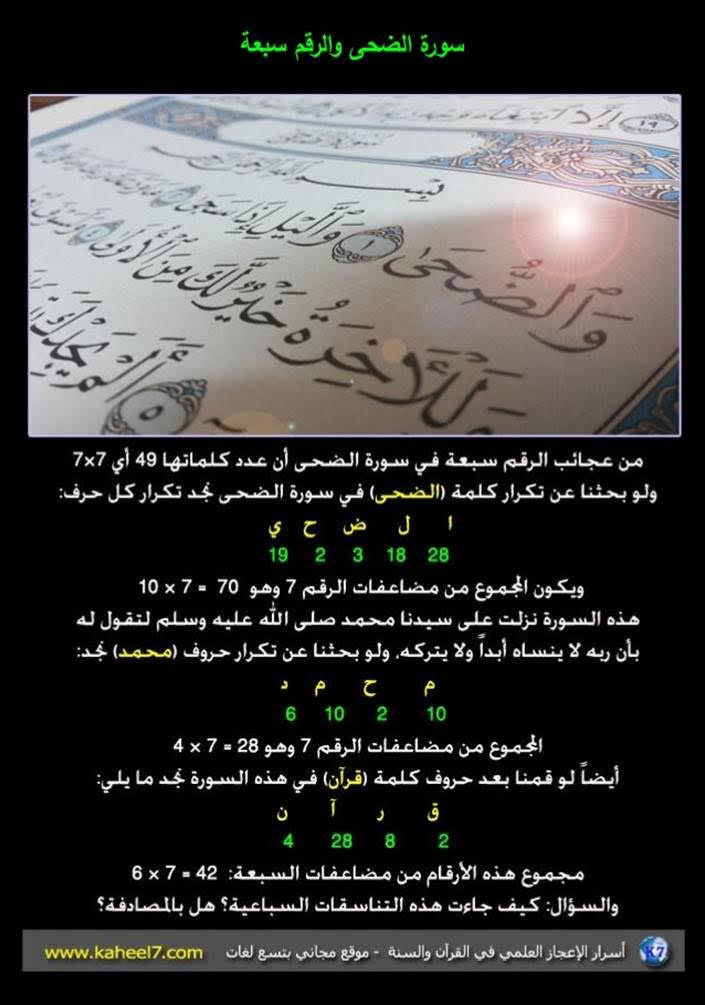 سورة الضحى والرقم سبعة
١٩ إلا
بسم الله الرحمن الرحيم
وَٱلضُّحَىٰ ١ وَٱلَّيْلِ إِذَا سَجَىٰ ٢
خَيْرٌ لَّكَ مِنَ ٱلْأُولَىٰ ٤
٥ أَلَمْ يَجِدْكَ
من عجائب الرقم سبعة في سورة الضحى أن عدد كلماتها 49 أي 7×7
ولو بحثنا عن تكرار كلمة (الضحى) في سورة الضحى نجد تكرار كل حرف:
ا ل ض ح ي
28 18 3 2 19
ويكون المجموع من مضاعفات الرقم 7 وهو 70 = 7 × 10
هذه السورة نزلت على سيدنا محمد صلى الله عليه وسلم لتقول له
بأن ربه لا ينساه أبداً ولا يتركه، ولو بحثنا عن تكرار حروف (محمد) نجد:
م ح م د
10 2 10 6
المجموع من مضاعفات الرقم 7 وهو 28 = 7 × 4
أيضاً لو قمنا بعد حروف كلمة (قرآن) في هذه السورة نجد ما يلي:
ق ر آ ن
2 8 28 4
مجموع هذه الأرقام من مضاعفات السبعة: 42 = 7 × 6
والسؤال: كيف جاءت هذه التناسقات السباعية؟ هل بالمصادفة؟
K7 أسرار الإعجاز العلمي في القرآن والسنة - موقع مجاني بتسع لغات www.kaheel7.com